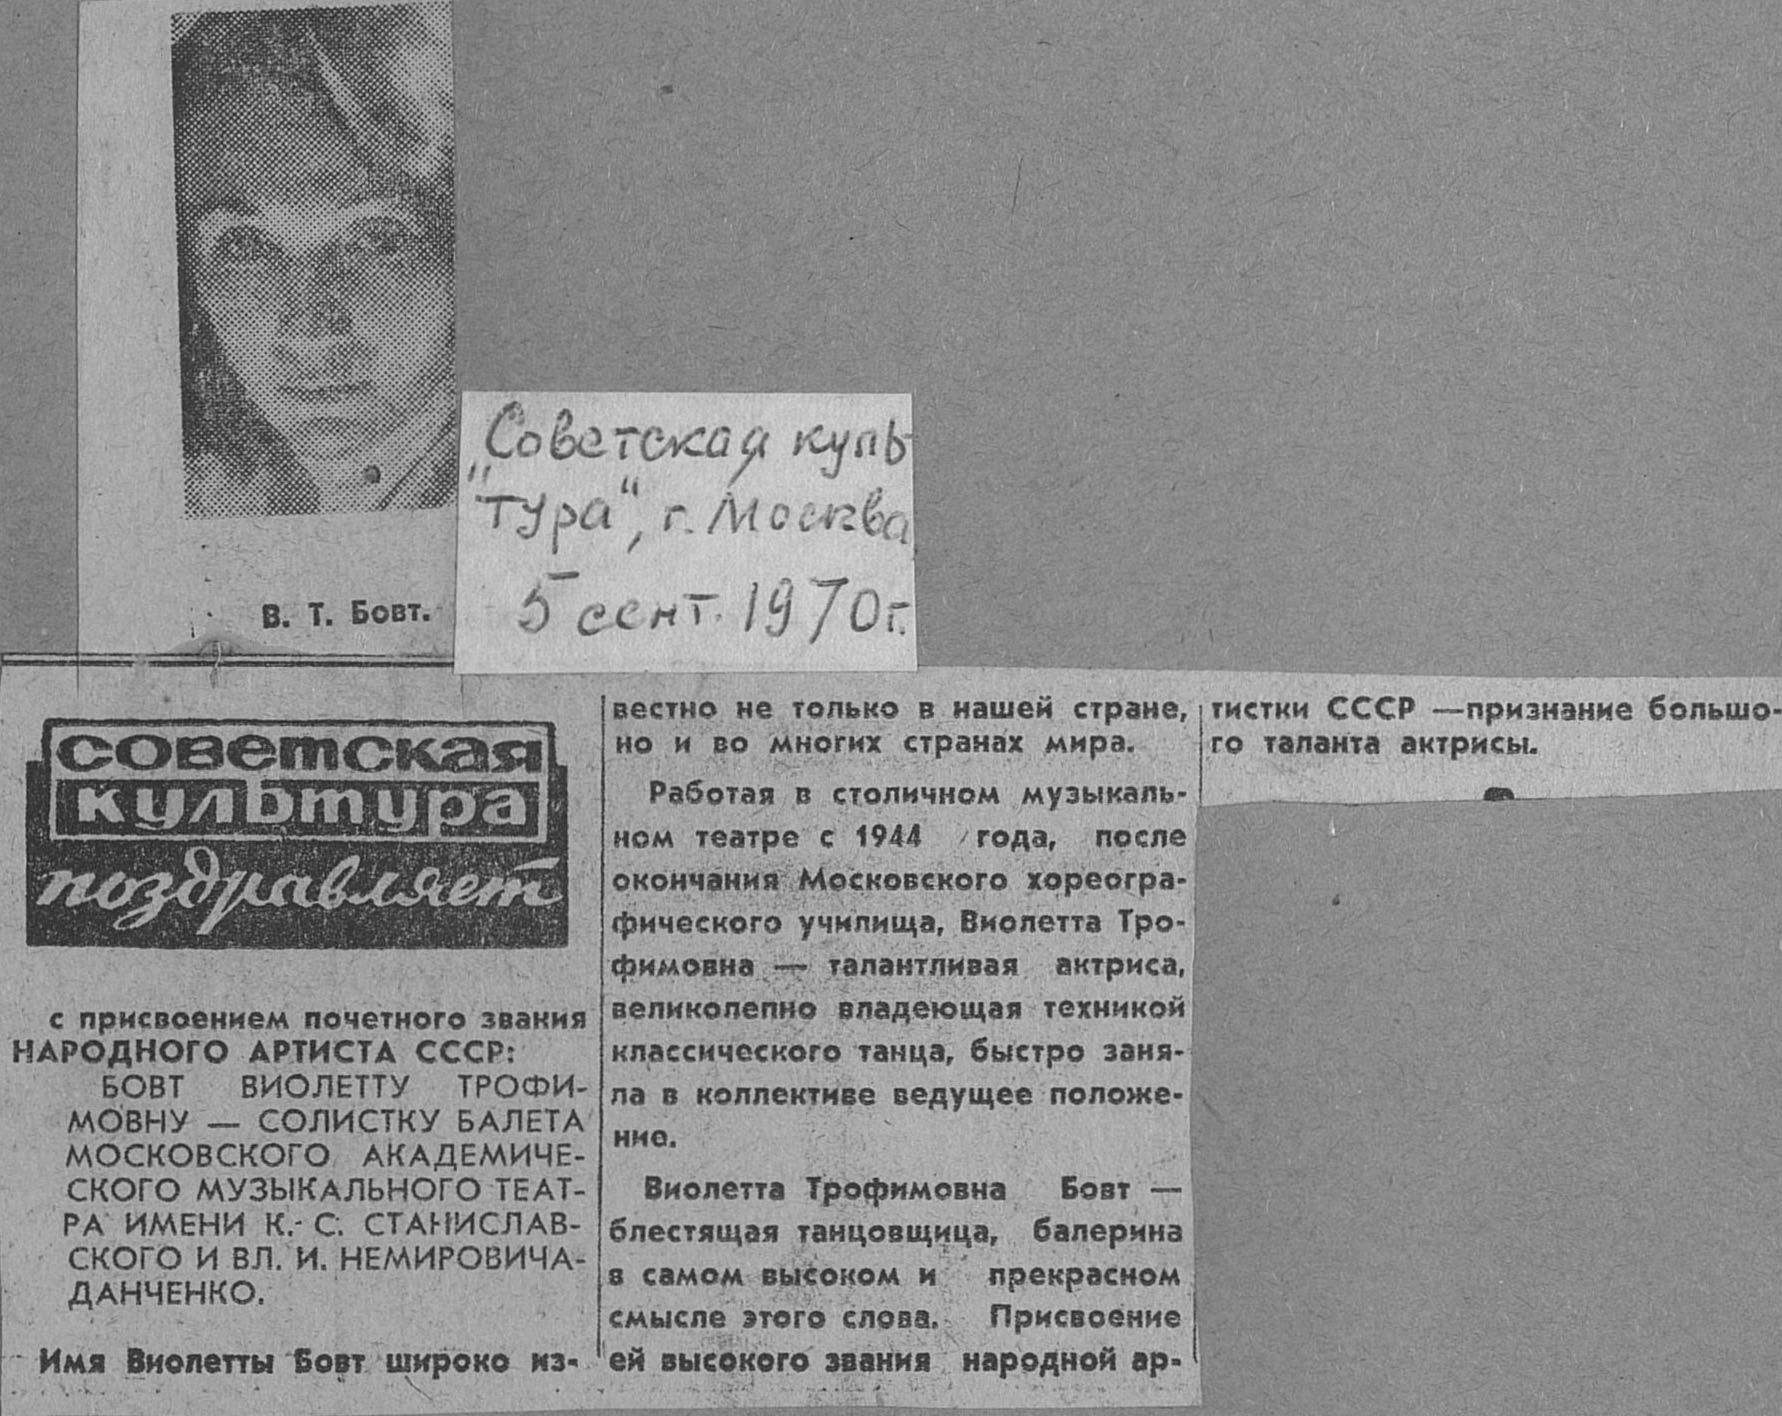 В. Т. Бовт.
„Советская куль-
тура“, г. Москва
5 сент. 1970г.
советская
культура
поздравляет
с присвоением почетного звания
НАРОДНОГО АРТИСТА СССР:
БОВТ ВИОЛЕТТУ ТРОФИ-
МОВНУ — СОЛИСТКУ БАЛЕТА
МОСКОВСКОГО АКАДЕМИЧЕ-
СКОГО МУЗЫКАЛЬНОГО ТЕАТ-
РА ИМЕНИ К. С. СТАНИСЛАВ-
СКОГО И ВЛ. И. НЕМИРОВИЧА-
ДАНЧЕНКО.
Имя Виолетты Бовт широко из-
вестно не только в нашей стране,
но и во многих странах мира.
Работая в столичном музыкаль-
ном театре с 1944 года, после
окончания Московского хореогра-
фического училища, Виолетта Тро-
фимовна — талантливая актриса,
великолепно владеющая техникой
классического танца, быстро заня-
ла в коллективе ведущее положе-
ние.
Виолетта Трофимовна Бовт —
блестящая танцовщица, балерина
в самом высоком и прекрасном
смысле этого слова. Присвоение
ей высокого звания народной ар-
тистки СССР —признание большо-
го таланта актрисы.